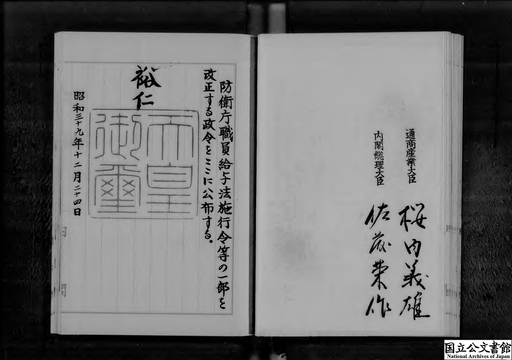 通商産業大臣 桜内義雄
内閣総理大臣 佐藤栄作
防衛庁職員給与法施行令等の一部を
改正する政令をここに公布する。
裕仁
天皇
御璽
昭和三十九年十二月二十四日
国立公文書館
National Archives of Japan